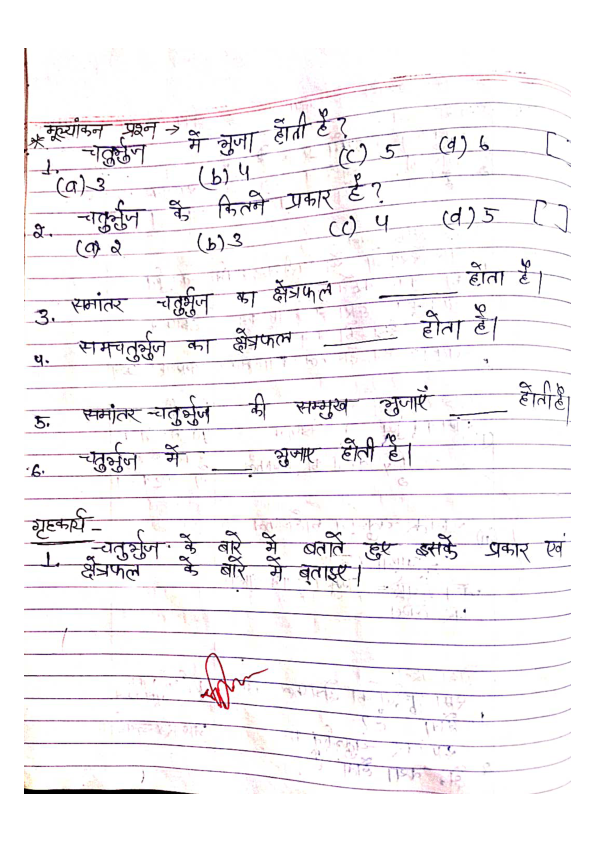 * मूल्यांकन प्रश्न →
1. चतुर्भुज में भुजा होती है ?
(a) 3 (b) 4 (c) 5 (d) 6 [ ]
2. चतुर्भुज के कितने प्रकार है ?
(a) 2 (b) 3 (c) 4 (d) 5 [ ]
3. समांतर चतुर्भुज का क्षेत्रफल ______ होता है।
4. सामचतुर्भुज का क्षेत्रफल ______ होता है।
5. समांतर चतुर्भुज की सम्मुख भुजाएँ ______ होती है।
6. चतुर्भुज में ____ भुजाए होती है।
गृहकार्य -
1. चतुर्भुज के बारे में बताते हुए इसके प्रकार एवं
क्षेत्रफल के बारे में बताइए।